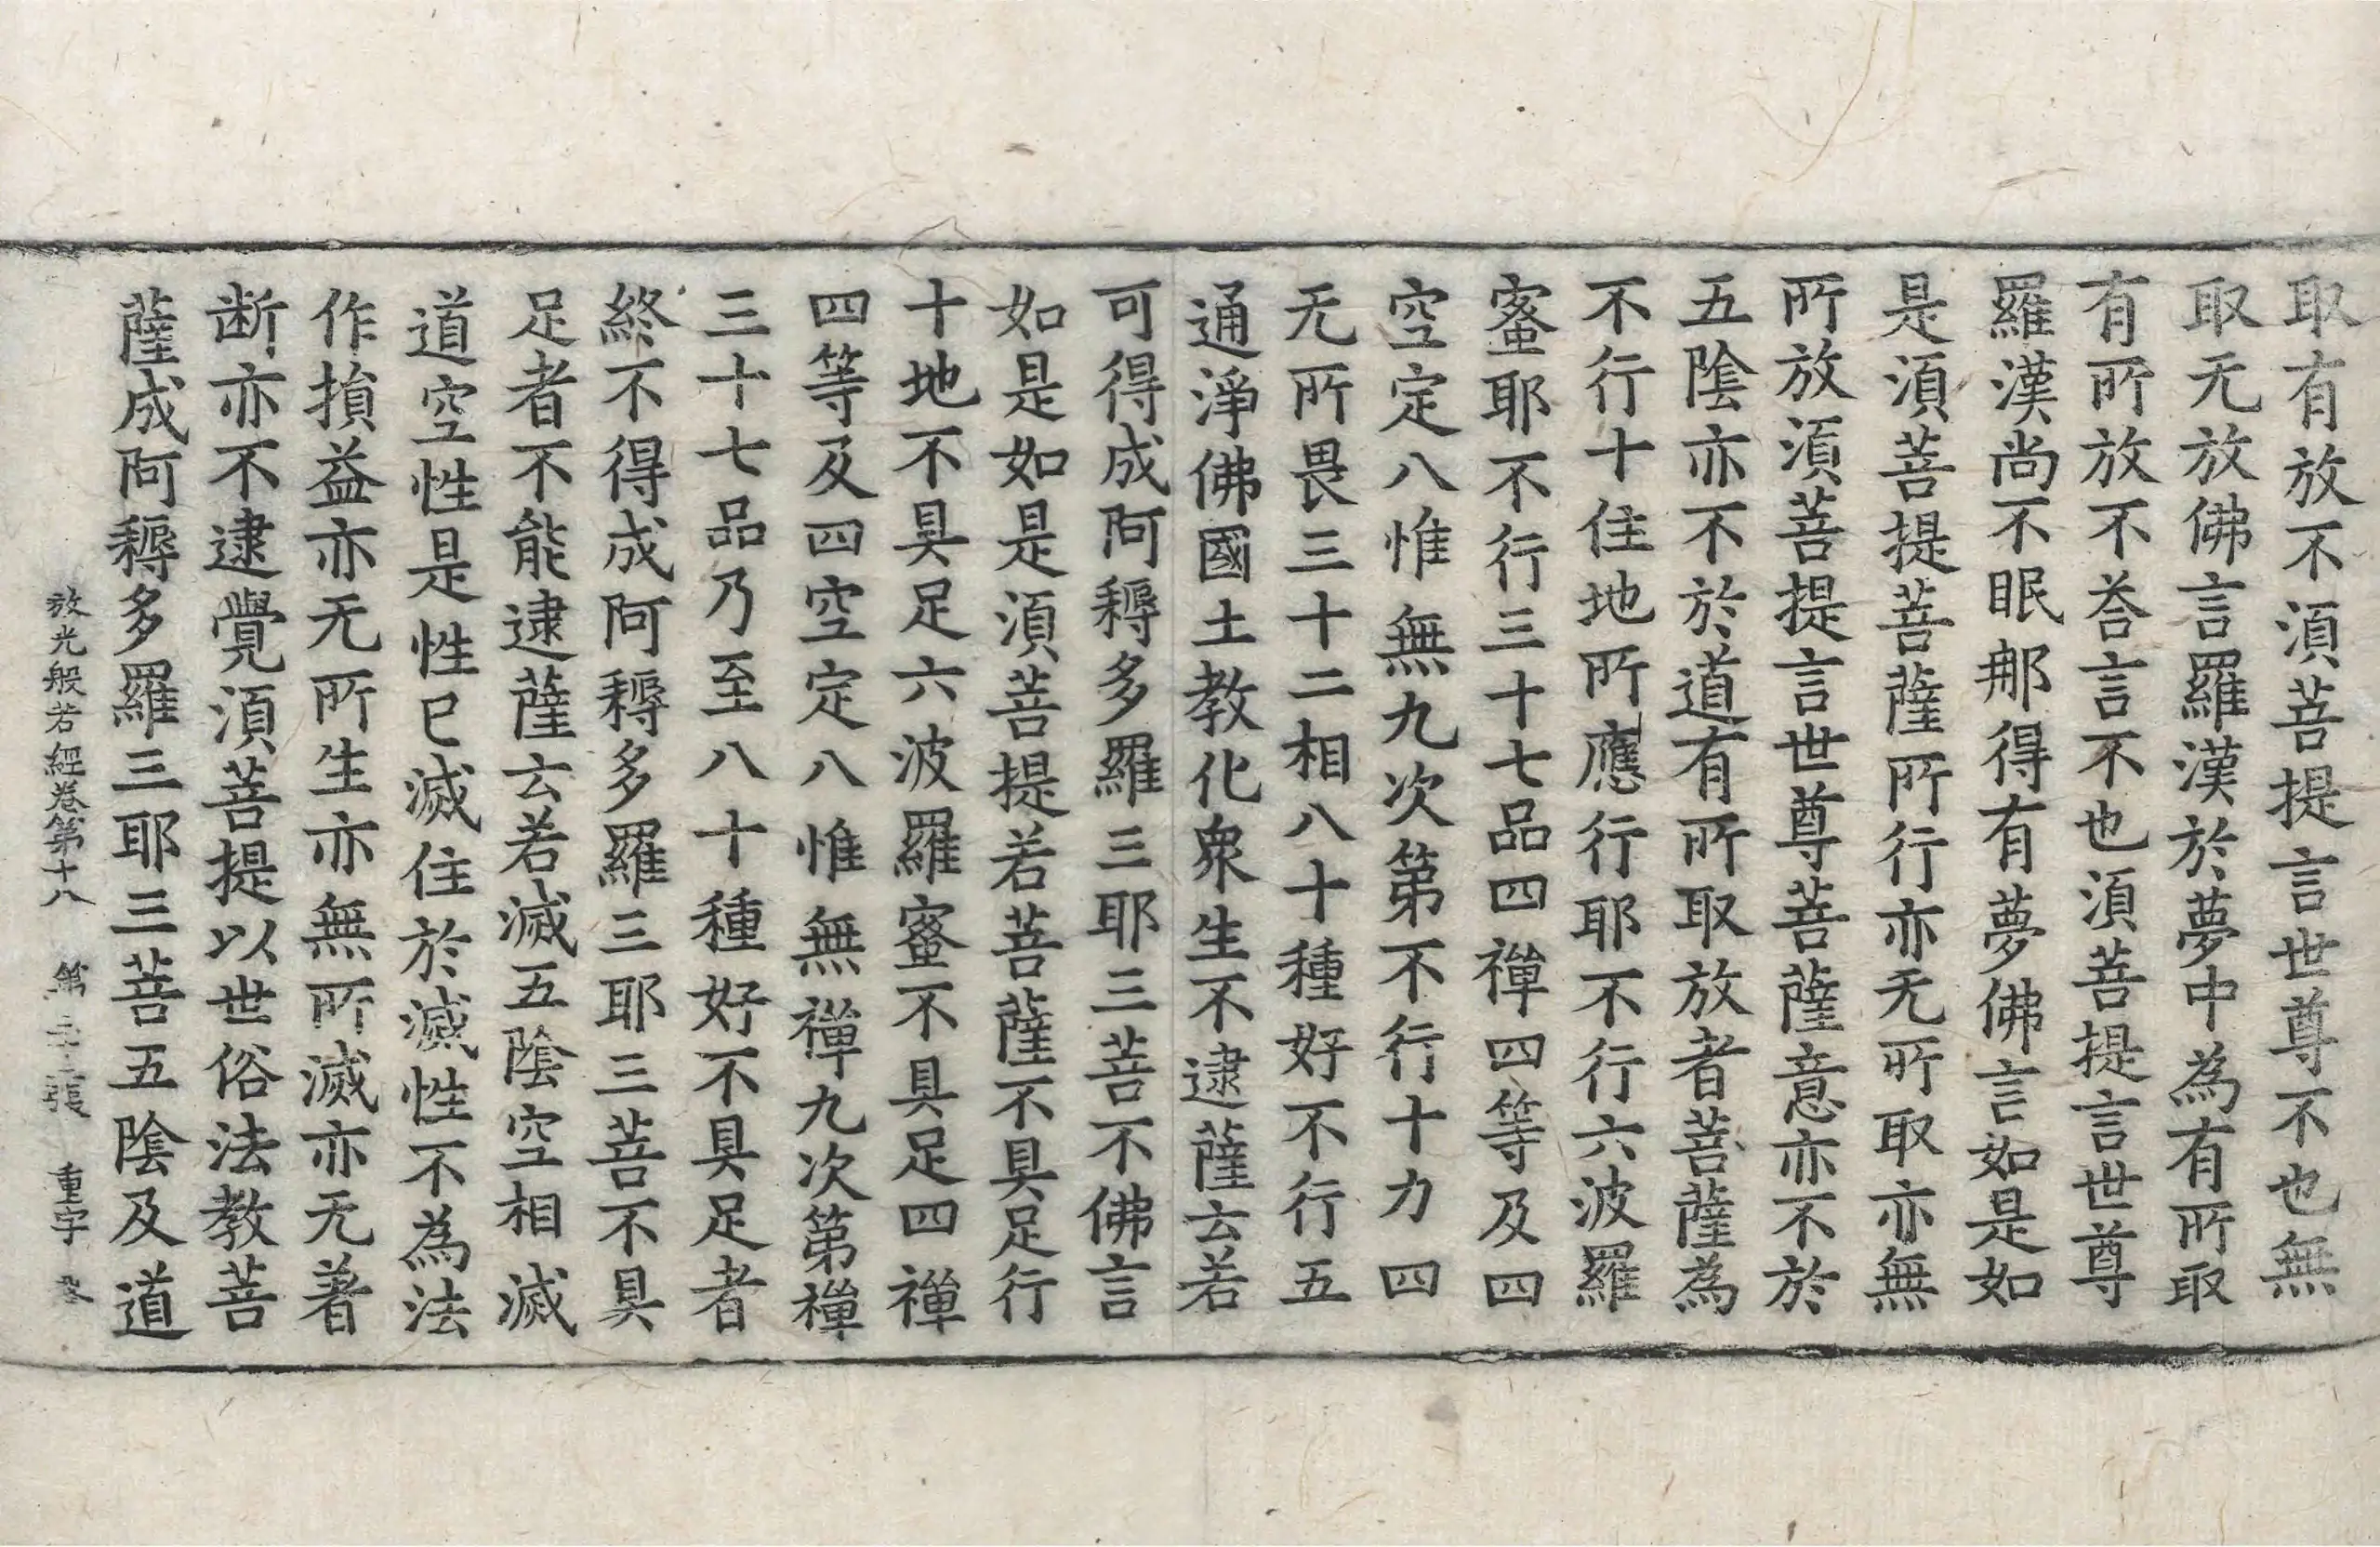 取有放不須菩提言世尊不也無
取无放佛言羅漢於夢中為有所取
有所放不荅言不也須菩提言世尊
羅漢尚不眠那得有夢佛言如是如
是須菩提菩薩所行亦无所取亦無
所放須菩提言世尊菩薩意亦不於
五陰亦不於道有所取放者菩薩為
不行十住地所應行耶不行六波羅
蜜耶不行三十七品四禪四等及四
空定八惟無九次第不行十力四
无所畏三十二相八十種好不行五
通淨佛國土教化衆生不逮薩云若
可得成阿耨多羅三耶三菩不佛言
如是如是須菩提若菩薩不具足行
十地不具足六波羅蜜不具足四禪
四等及四空定八惟無禪九次第禪
三十七品乃至八十種好不具足者
終不得成阿耨多羅三耶三菩不具
足者不能逮薩云若滅五陰空相滅
道空性是性已滅住於滅性不為法
作損益亦无所生亦無所滅亦无著
断亦不逮覺須菩提以世俗法教菩
薩成阿耨多羅三耶三菩五陰及道
放光般若經卷第十八 第 張 重字